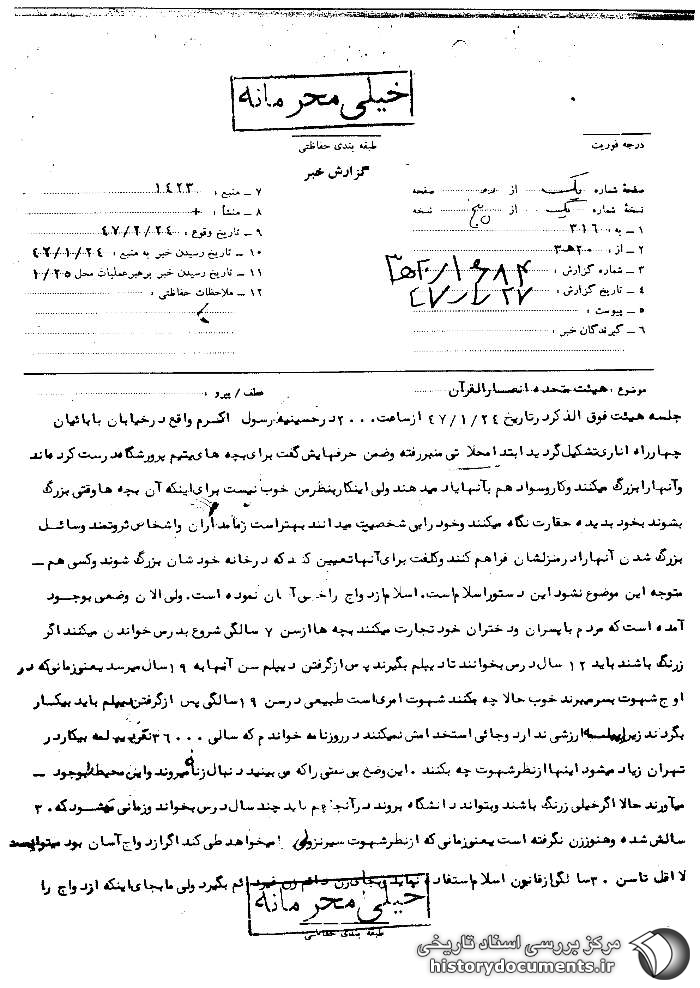 خیلی محرمانه
طبقه بندی حفاظتی
درجه فوریت
گزارش خبر
صفحهٔ شماره یک از صفحه
نسخهٔ شماره یک از پنج نسخه
۱ ــ به : ۳۱۶
۲ ــ از : ۲۰ﻫ۳
۳ ــ شماره گزارش :
۴ ــ تاریخ گزارش :
۵ ــ پیوست :
۶ ــ گیرندگان خبر :
۷ ــ منبع : ۱۴۲۳
۸ ــ منشأ : +
۹ ــ تاریخ وقوع : ۴۷/۲/۲۴
۱۰ ــ تاریخ رسیدن خبر به منبع : ۴۶/۱/۲۴
۱۱ ــ تاریخ رسیدن خبر برهبرعملیات محل ۱/۲۵
۱۲ ــ ملاحظات حفاظتی :
موضوع : هیئت متحده انصارالقرآن
عطف / پیرو :
جلسه هیئت فوق الذکر در تاریخ ۴۷/۱/۲۴ از ساعت ۲۰۰۰ در حسینیه رسول اکرم واقع در خیابان بابائیان
چهارراه اناری تشکیل گردید ابتدا محلاتی منبر رفته وضمن حرفهایش گفت برای بچه های یتیم پرورشگاه درست کرده اند
وآنها را بزرگ میکنند وکار وسواد هم بآنها یاد میدهند ولی اینکار بنظر من خوب نیست برای اینکه آن بچه ها وقتی بزرگ
بشوند بخود بدیده حقارت نگاه میکنند وخود را بی شخصیت میدانند بهتر است زمامداران واشخاص ثروتمند وسائل
بزرگ شدن آنها را در منزلشان فراهم کنند وکلفت برای آنها تعیین کنند که در خانه خودشان بزرگ شوند وکسی هم ــ
متوجه این موضوع نشود این دستور اسلام است. اسلام ازدواج را خیلی آسان نموده است. ولی الان وضعی بوجود
آمده است که مردم با پسران ودختران خود تجارت میکنند بچه ها از سن ۷ سالگی شروع بدرس خواندن میکنند اگر
زرنگ باشند باید ۱۲ سال درس بخوانند تا دیپلم بگیرند پس از گرفتن دیپلم سن آنها به ۱۹ سال میرسد یعنی زمانی که در
اوج شهوت بسر میبرند خوب حالا چه بکنند شهوت امری است طبیعی در سن ۱۹ سالگی پس از گرفتن دیپلم باید بیکار
بگردند زیرا دیپلمه ارزشی ندارد وجائی استخدامش نمیکنند در روزنامه خواندم که سالی ۳۶۰۰۰ نفر دیپلمه بیکار در
تهران زیاد میشود اینها از نظر شهوت چه بکنند. این وضع بی عفتی را که می بینید دنبال زنا میروند واین محیط را بوجود ــ
میآورند حالا اگر خیلی زرنگ باشند وبتواند دانشگاه بروند در آنجا هم باید چند سال درس بخواند وزمانی میشود که ۳۰
سالش شده وهنوز زن نگرفته است یعنی زمانی که از نظر شهوت سیر نزولی را میخواهد طی کند اگر ازدواج آسان بود میتوانست
لااقل تا سن ۳۰ سالگی از قانون اسلام استفاده نماید وبجای زن دائم زن غیر دائم بگیرد ولی ما بجای اینکه ازدواج را
خیلی محرمانه
طبقه بندی حفاظتی
مرکز بررسی اسناد تاریخی
historydocuments.ir